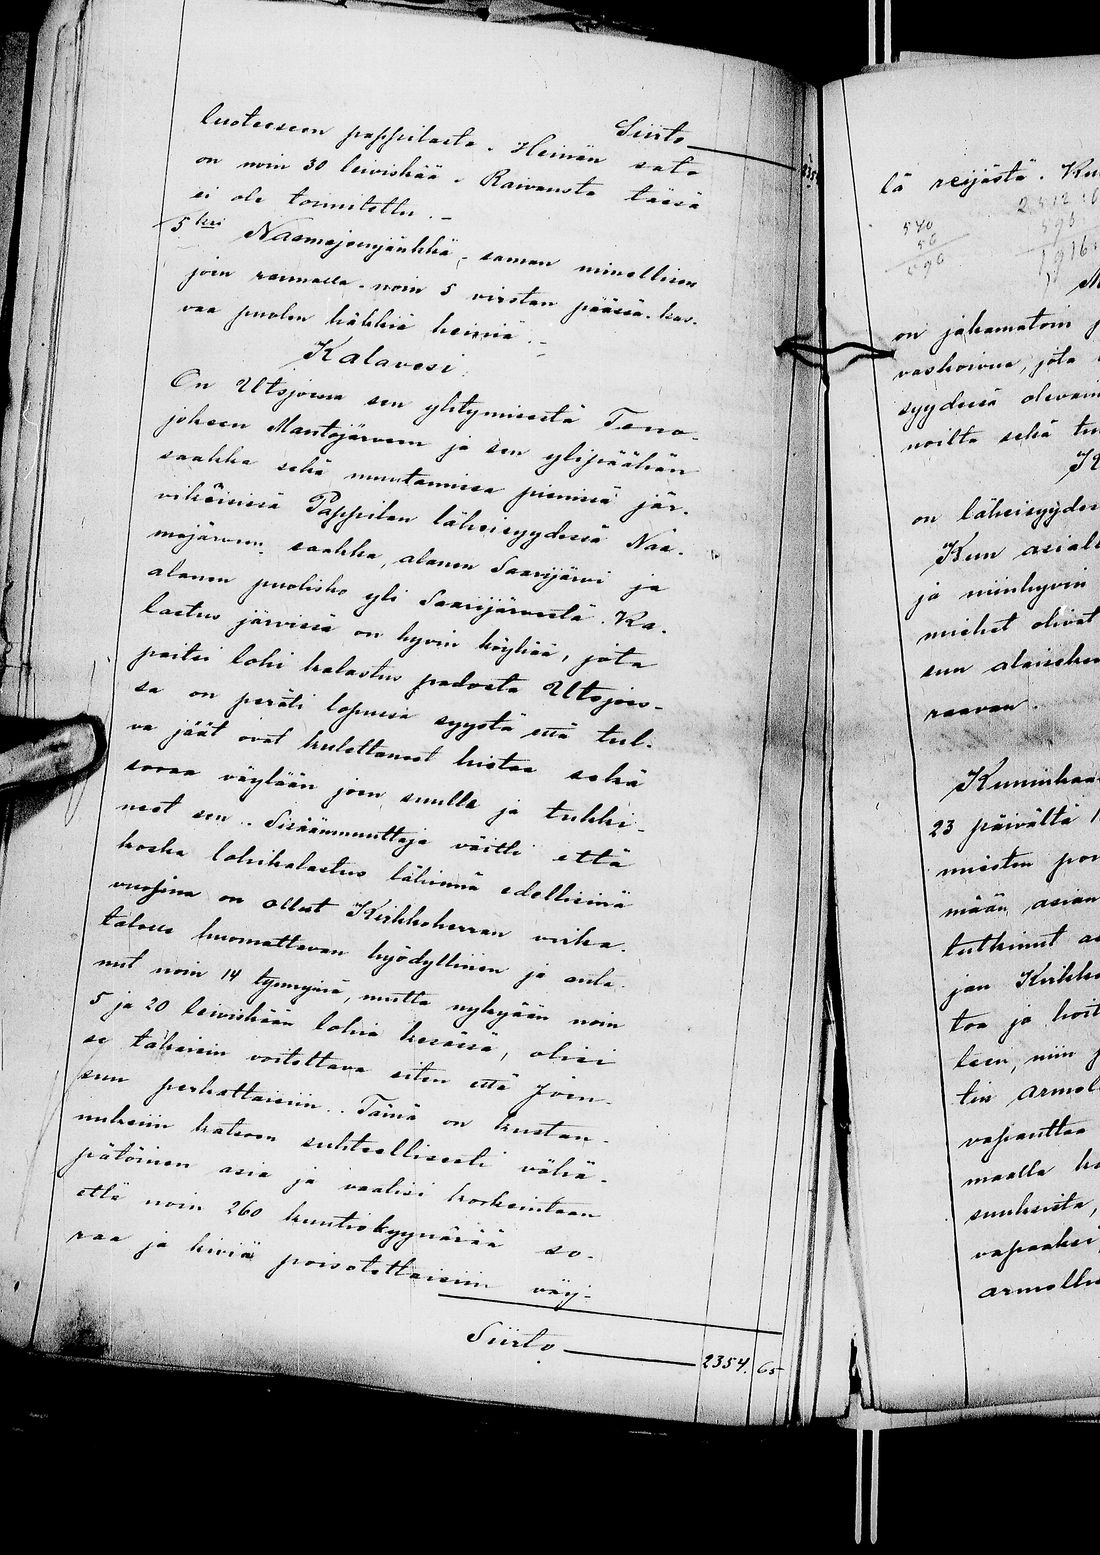 Siirto 235
luoteeseen pappilasta. Heinän sato
on noin 30 leiviskää. Raivausta tässä
ei ole toimitettu. –
5 ksi Naamajoenjänkkä, saman nimellisen
joen rannalla. noin 5 virstan päässä. kas-
vaa puolen häkkiä heiniä. –
Kalavesi.
On Utsjoessa sen yhtymisestä Teno-
jokeen Mantojärveen ja sen ylipäähän
saakka sekä muutamissa pienissä jär-
vilöissä Pappilan läheisyydessä Naa-
majärveen saakka, alanen Saarijärvi ja
alanen puolisko yli Saarijärvestä. Ka-
lastus järvissä on hyvin köyhää, jota
paitsi lohi kalastus padosta Utsjoes-
sa on peräti lopussa syystä että tul-
va jäät ovat kulettaneet hietaa sekä
soraa väylään joen suulla ja tukki-
neet sen. Sisäänmuuttaja väitti että
koska lohikalastus lähinnä edellisinä
vuosina on ollut Kirkkoherran virka-
talolle huomattavan hyödyllinen ja anta-
nut noin 14 tynnyriä, mutta nykyään noin
5 ja 20 leiviskään lohia kesässä, olisi
se takaisin voitettava siten että joen-
suu perkattaisiin. Tämä on kustan-
nuksiin katsoen suhteellisesti vähä-
pätöinen asia ja vaatisi korkeintaan
että noin 260 kuutiokyynärää so-
raa ja kiviä poisotettaisiin väy-
Siirto 2354. 65
lä reijästä.
570
56
596
on jakamatoin
vaskoivua, jota
syydessä olevain
noilta sekä
on läheisyydes
Kun asiall
ja niinhyvin
miehet olivat
sen alaiseksi
raavan.
23 päivältä 1
miesten
mään, asian
tutkinut
jan Kirkko
toa ja hoit
leen, niin
tin armol
vapauttaa
maalla
suuksista,
vapaaksi
armollis